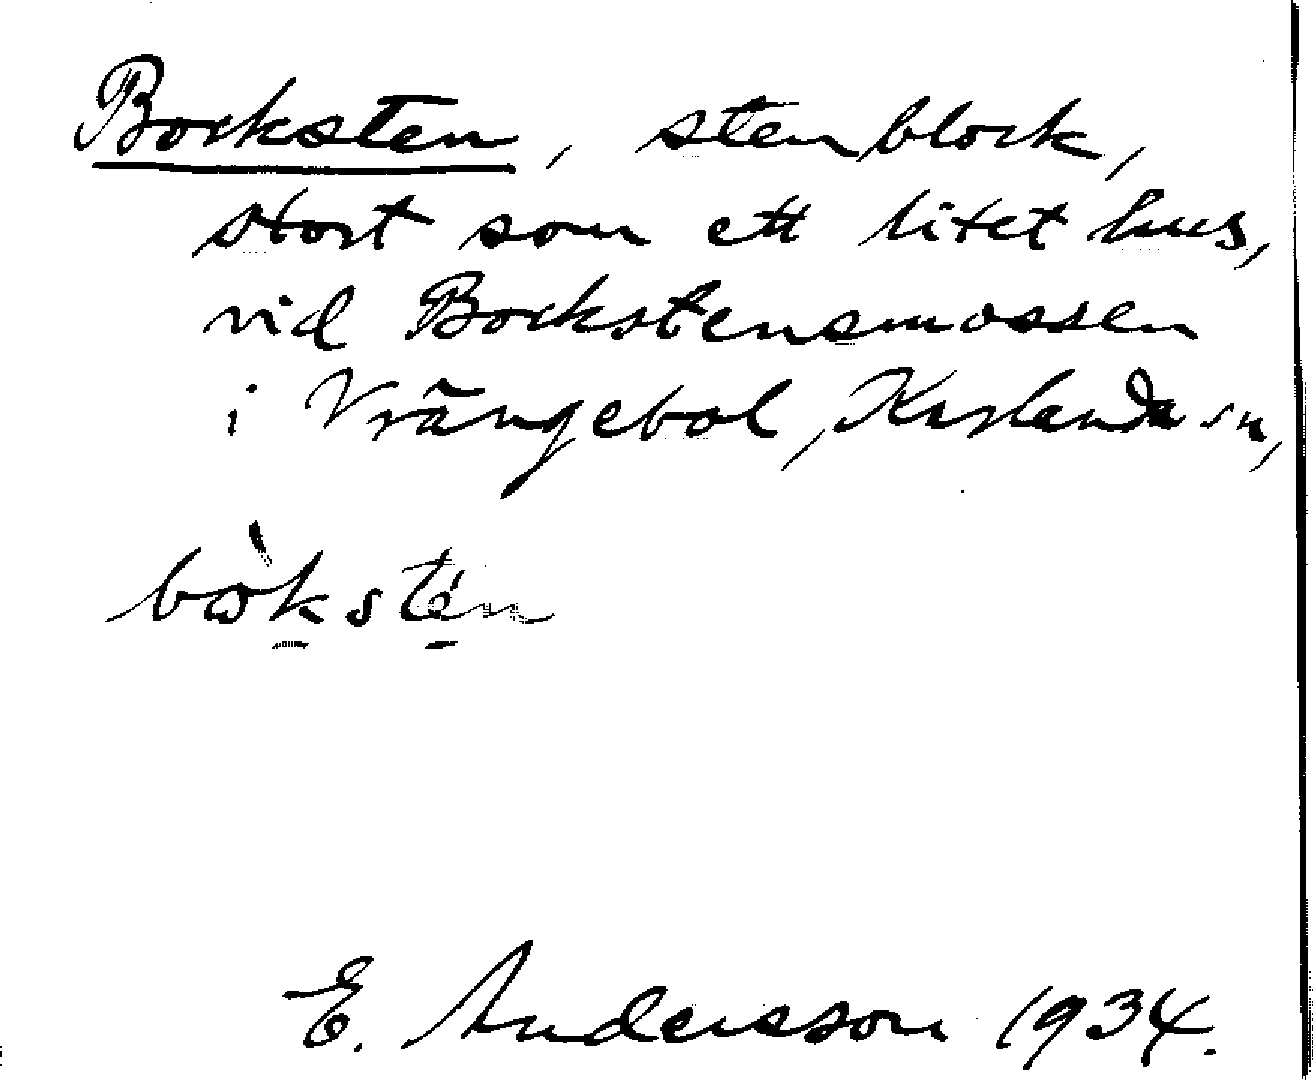 Bocksten, stenblock,
stort som ett litet hus,
vid Bockstensmossen
i Vrängebol, Karlanda sn,
bòkstén
E. Andersson 1934.